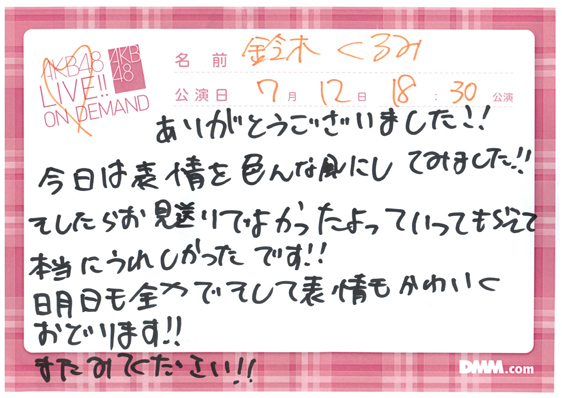 AKB48
LIVE!!
ON DEMAND
AKB
48
名前 鈴木くるみ
公演日 7月12日 18:30公演
ありがとうございました!!
今日は表情を色んな風にしてみました!!
そしたらお見送りでよかったよっていってもらえて
本当にうれしかったです!!
明日も全力でそして表情もかわいく
おどります!!
またみてください!!
DMM.com